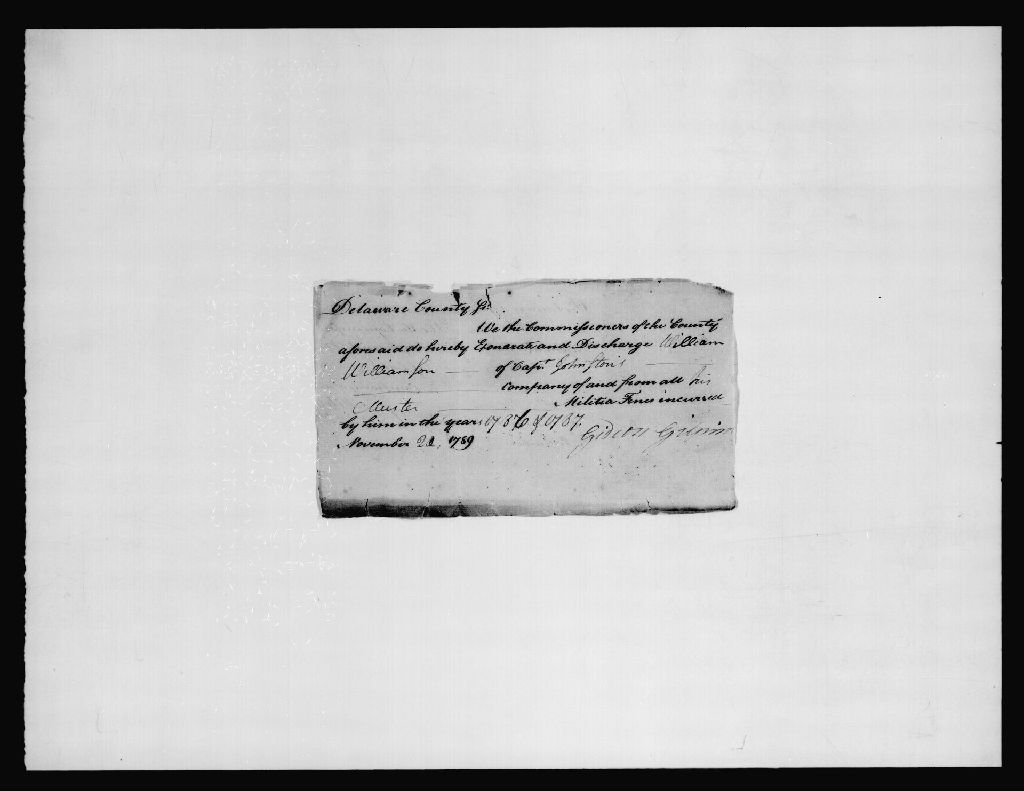 Delaware County ss.
We the Commissioners of the County
aforesaid do hereby Exonerate and Discharge William
Williamson of Capt. Johnston's
Company of and from all his
Muster Militia Fines incurred
by him in the years 1786 & 1787.
November 21, 1789
Gideon